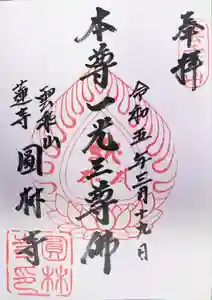 奉拝
令和五年三月十九日
本尊一元三尊仏
雲乗山
蓮寺
圓林寺
圓林
寺印